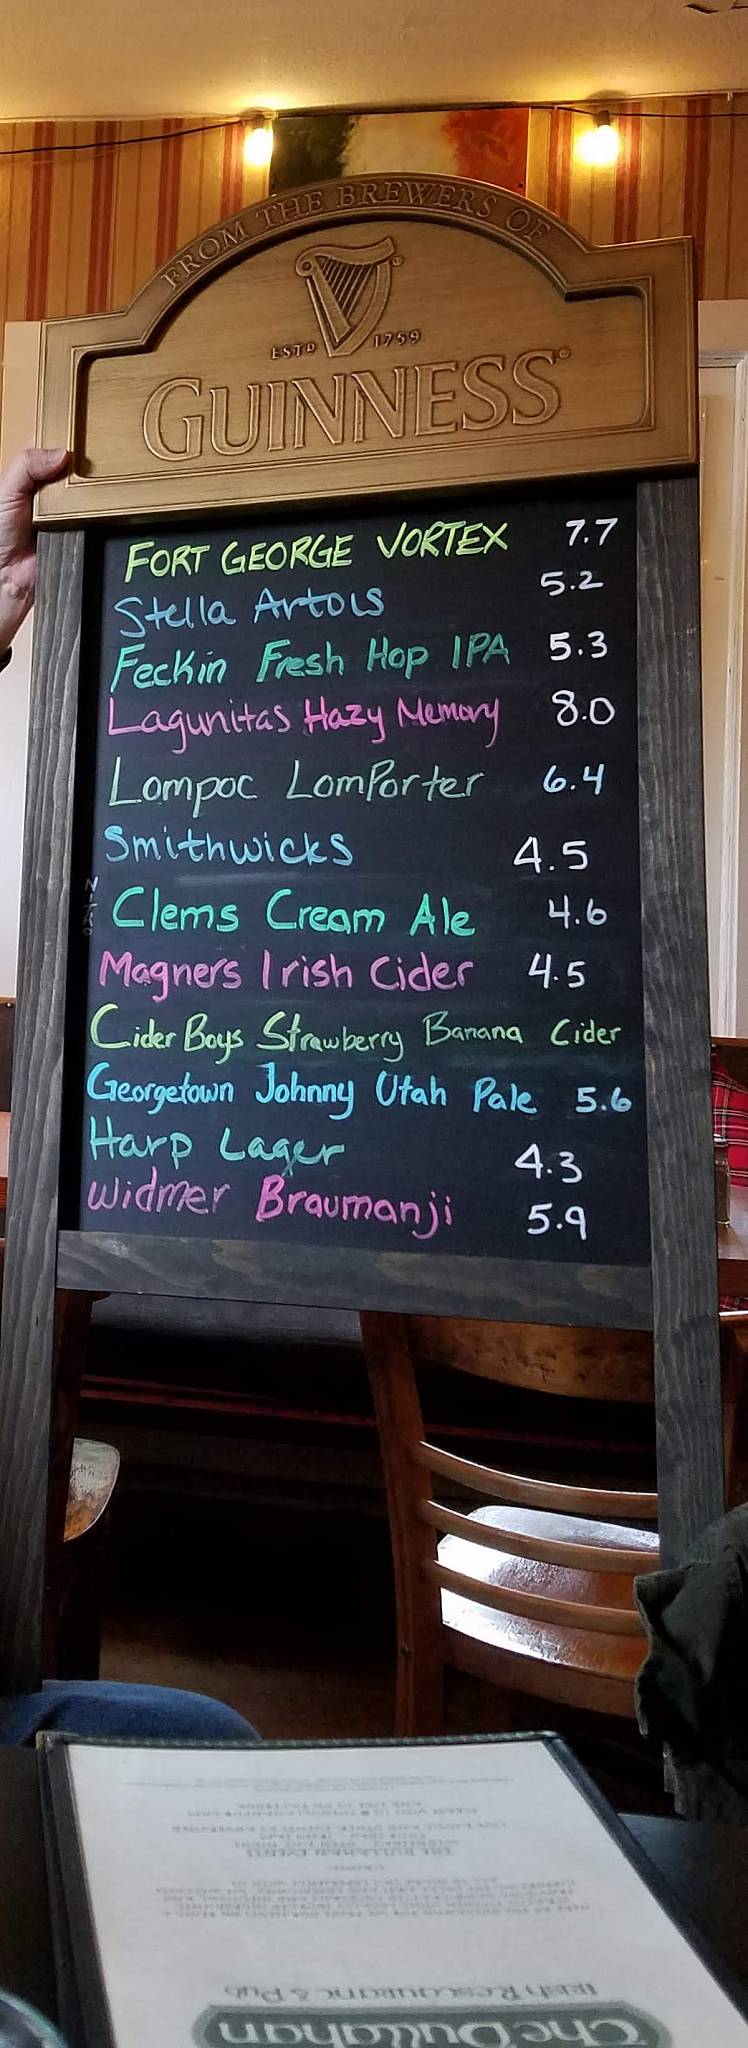 FROM THE BREWERS OF
ESTD 1759
GUINNESS
FORT GEORGE VORTEX 7.7
Stella Artois 5.2
Feckin Fresh Hop IPA 5.3
Lagunitas Hazy Memory 8.0
Lompoc LomPorter 6.4
Smithwicks 4.5
Clems Cream Ale 4.6
Magners Irish Cider 4.5
Cider Boys Strawberry Banana Cider
Georgetown Johnny Utah Pale 5.6
Harp Lager 4.3
Widmer Braumanji 5.9
The Dullahan
Irish Restaurant & Pub
THE DULLAHAN EVENTS